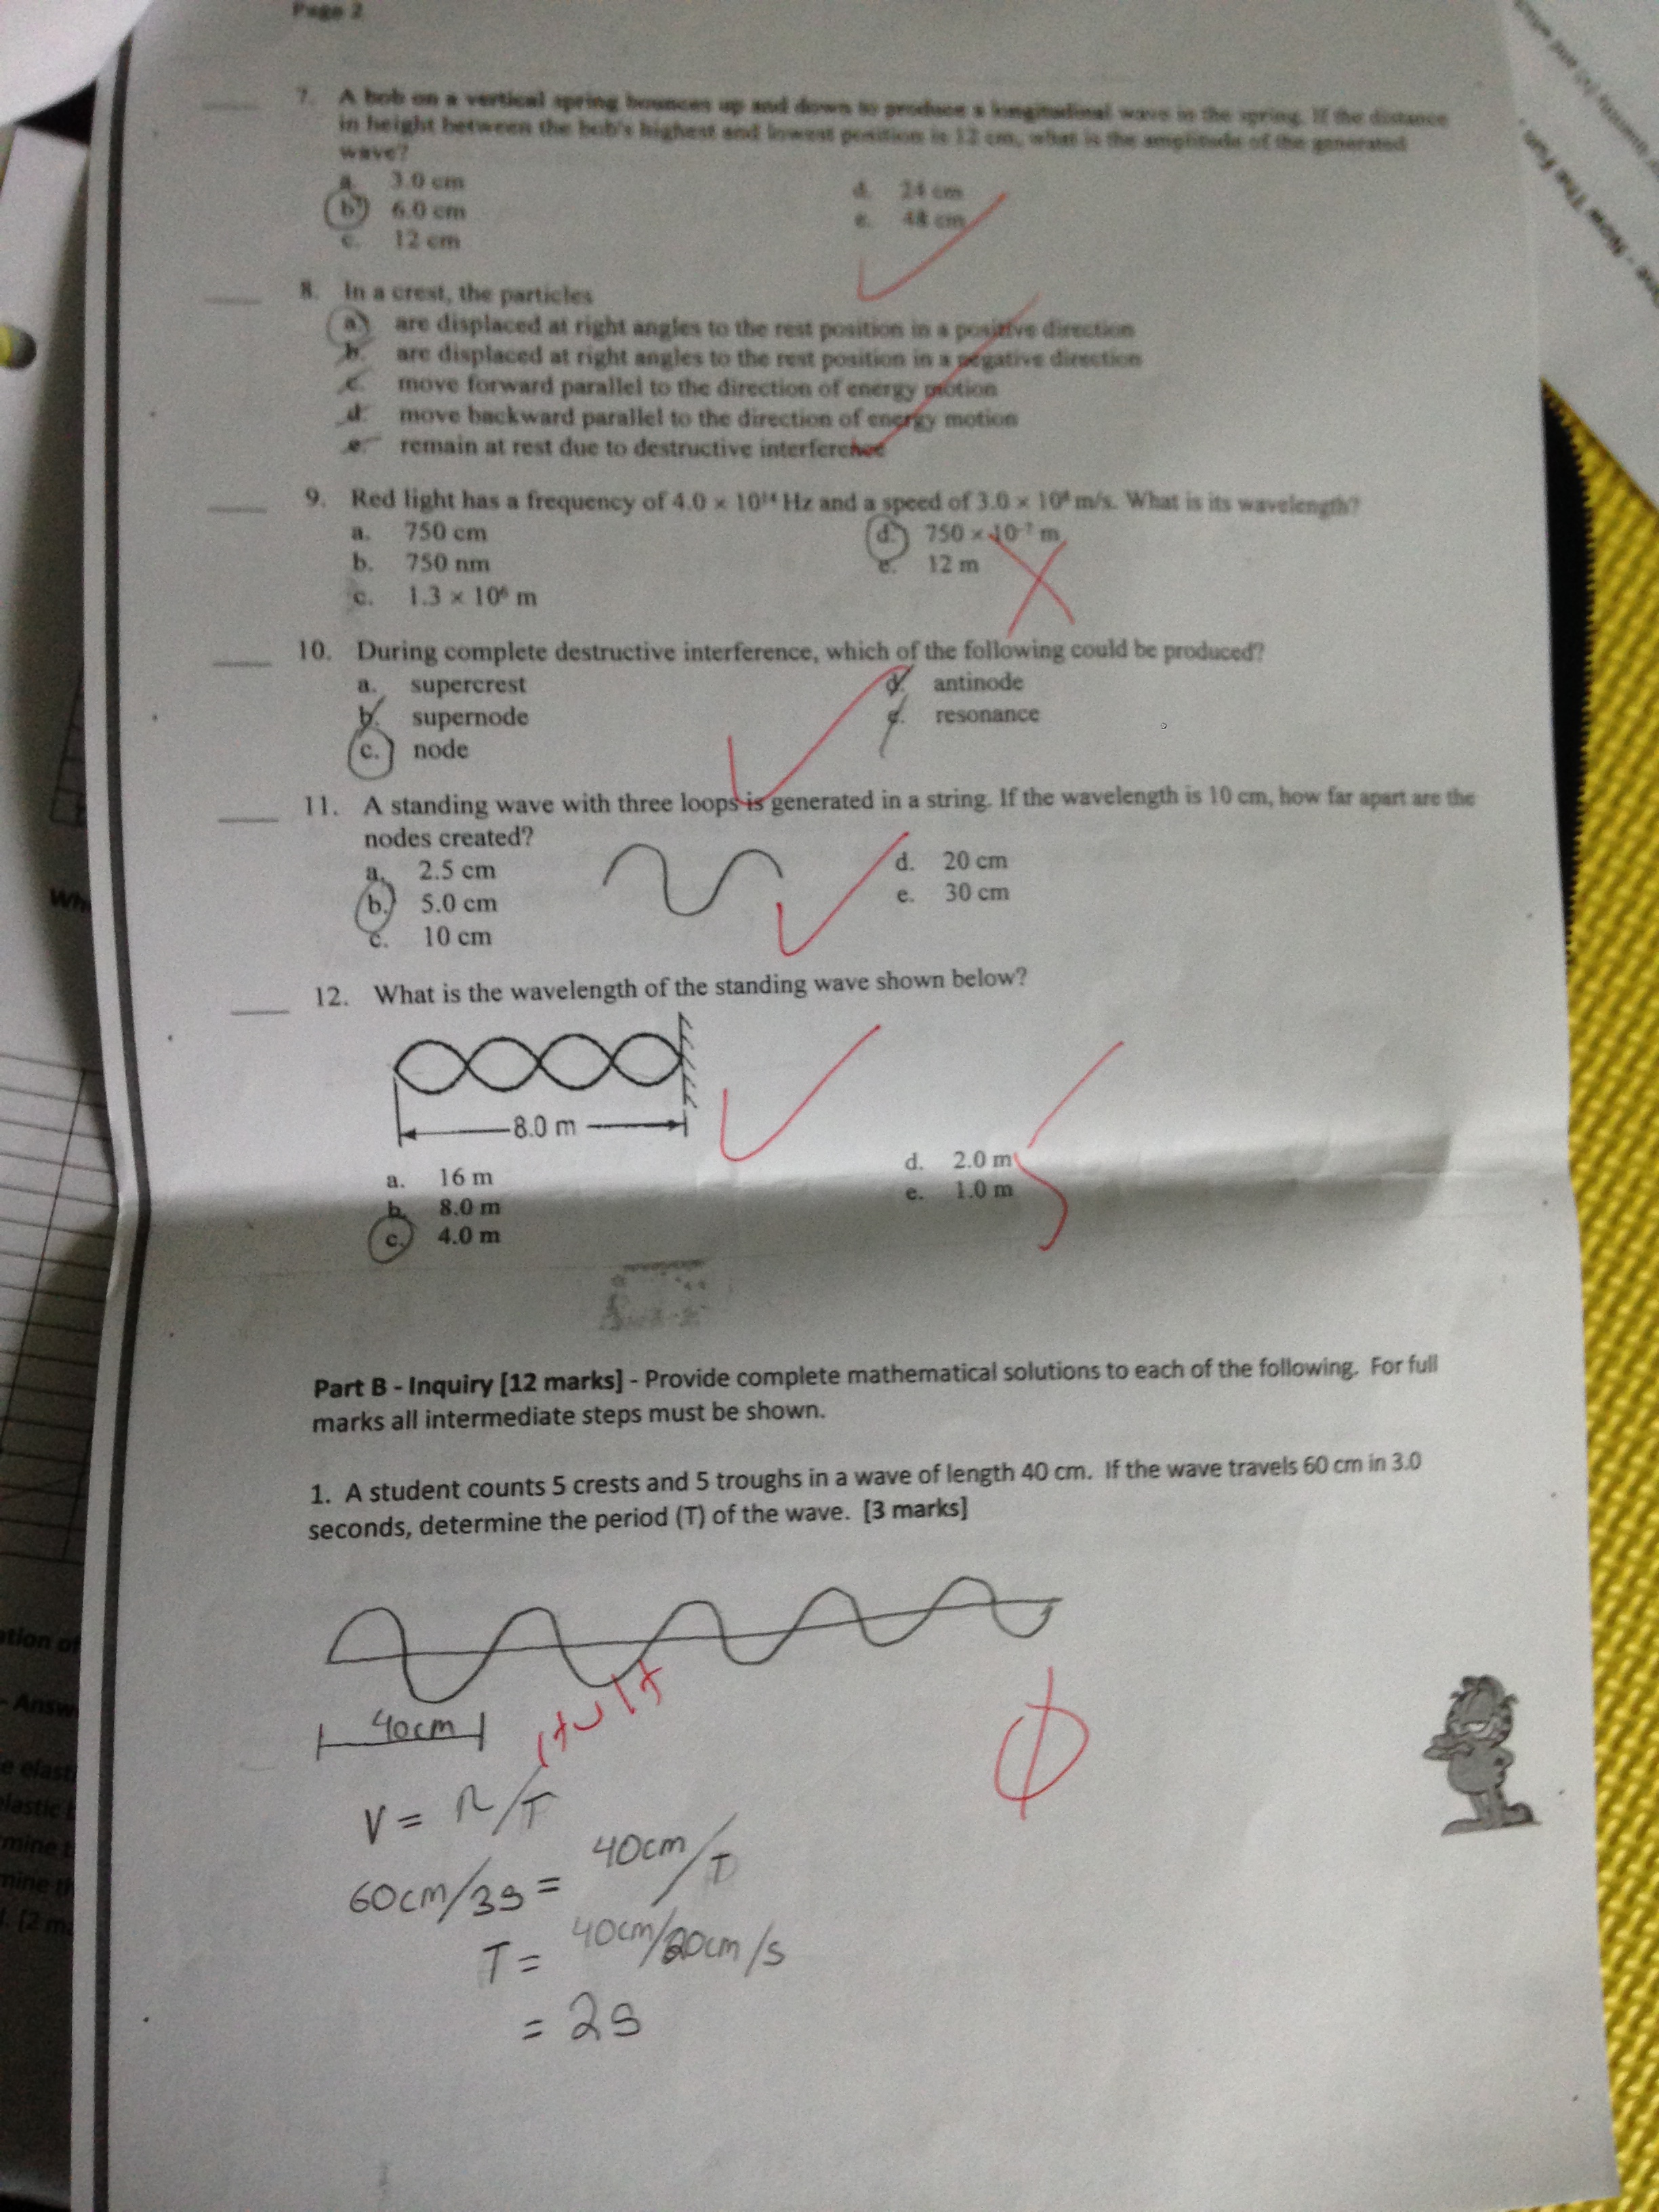 Page 2
7. A bob on a vertical spring bounces up and down to produce a longitudinal wave in the spring. If the distance
in height between the bob's highest and lowest position is 12 cm, what is the amplitude of the generated
wave?
a. 3.0 cm d. 24 cm
b. 6.0 cm e. 48 cm
c. 12 cm
8. In a crest, the particles
a. are displaced at right angles to the rest position in a positive direction
b. are displaced at right angles to the rest position in a negative direction
c. move forward parallel to the direction of energy motion
d. move backward parallel to the direction of energy motion
e. remain at rest due to destructive interference
9. Red light has a frequency of 4.0 × 10¹⁴ Hz and a speed of 3.0 × 10⁸ m/s. What is its wavelength?
a. 750 cm d. 750 × 10⁻⁷ m
b. 750 nm e. 12 m
c. 1.3 × 10⁶ m
10. During complete destructive interference, which of the following could be produced?
a. supercrest d. antinode
b. supernode e. resonance
c. node
11. A standing wave with three loops is generated in a string. If the wavelength is 10 cm, how far apart are the
nodes created?
a. 2.5 cm d. 20 cm
b. 5.0 cm e. 30 cm
c. 10 cm
12. What is the wavelength of the standing wave shown below?
8.0 m
a. 16 m d. 2.0 m
b. 8.0 m e. 1.0 m
c. 4.0 m
Part B - Inquiry [12 marks] - Provide complete mathematical solutions to each of the following. For full
marks all intermediate steps must be shown.
1. A student counts 5 crests and 5 troughs in a wave of length 40 cm. If the wave travels 60 cm in 3.0
seconds, determine the period (T) of the wave. [3 marks]
40cm
V = λ/T
60cm/3s = 40cm/T
T = 40cm/20cm/s
= 2s